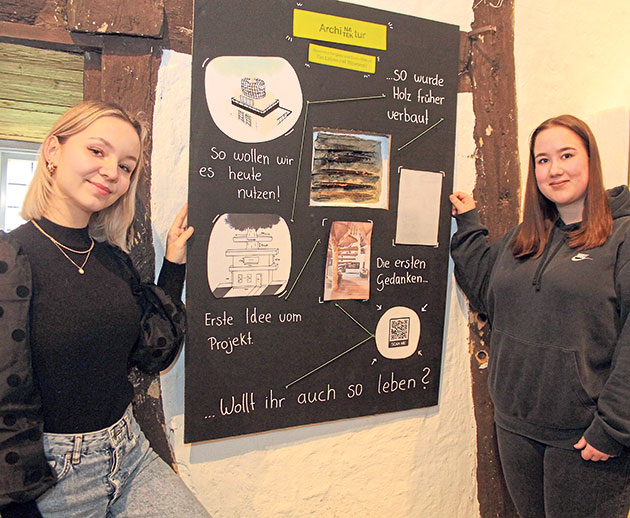 Archi NA TEK tur
...so wurde
Holz früher
verbaut
So wollen wir
es heute
nutzen!
Die ersten
Gedanken...
Erste Idee vom
Projekt.
SCAN ME
...Wollt ihr auch so leben?